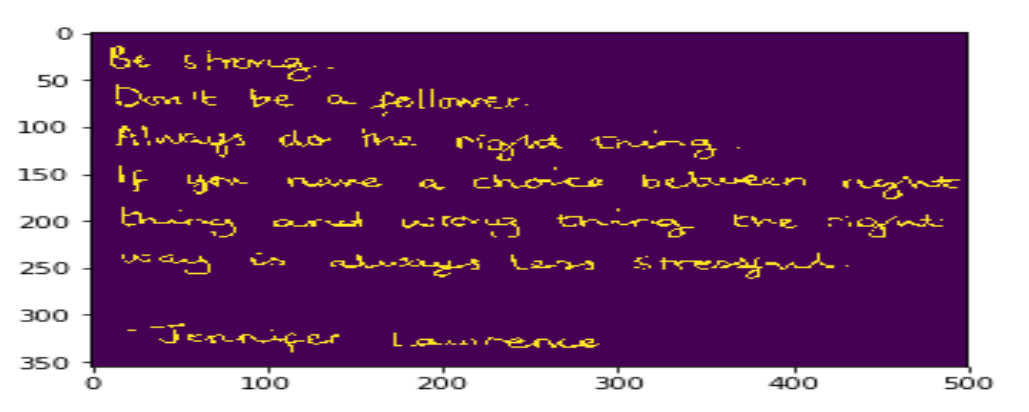 0
50
100
150
200
250
300
350
Be strong.
Don't be a follower.
Always do the right thing.
If you have a choice between right
thing and wrong thing the right
way is always less stressful.
- Jennifer Lawrence
0 100 200 300 400 500